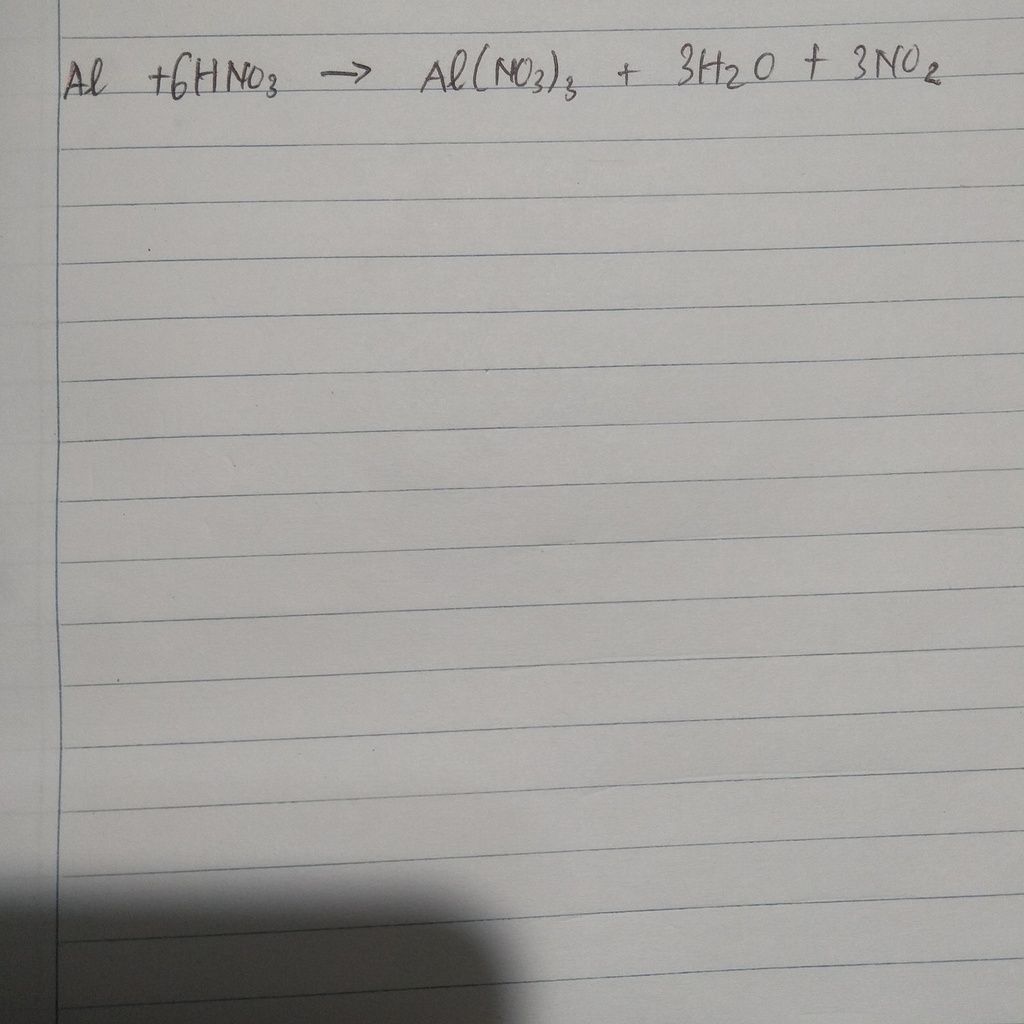 Al +6HNO₃ → Al(NO₃)₃ + 3H₂O + 3NO₂